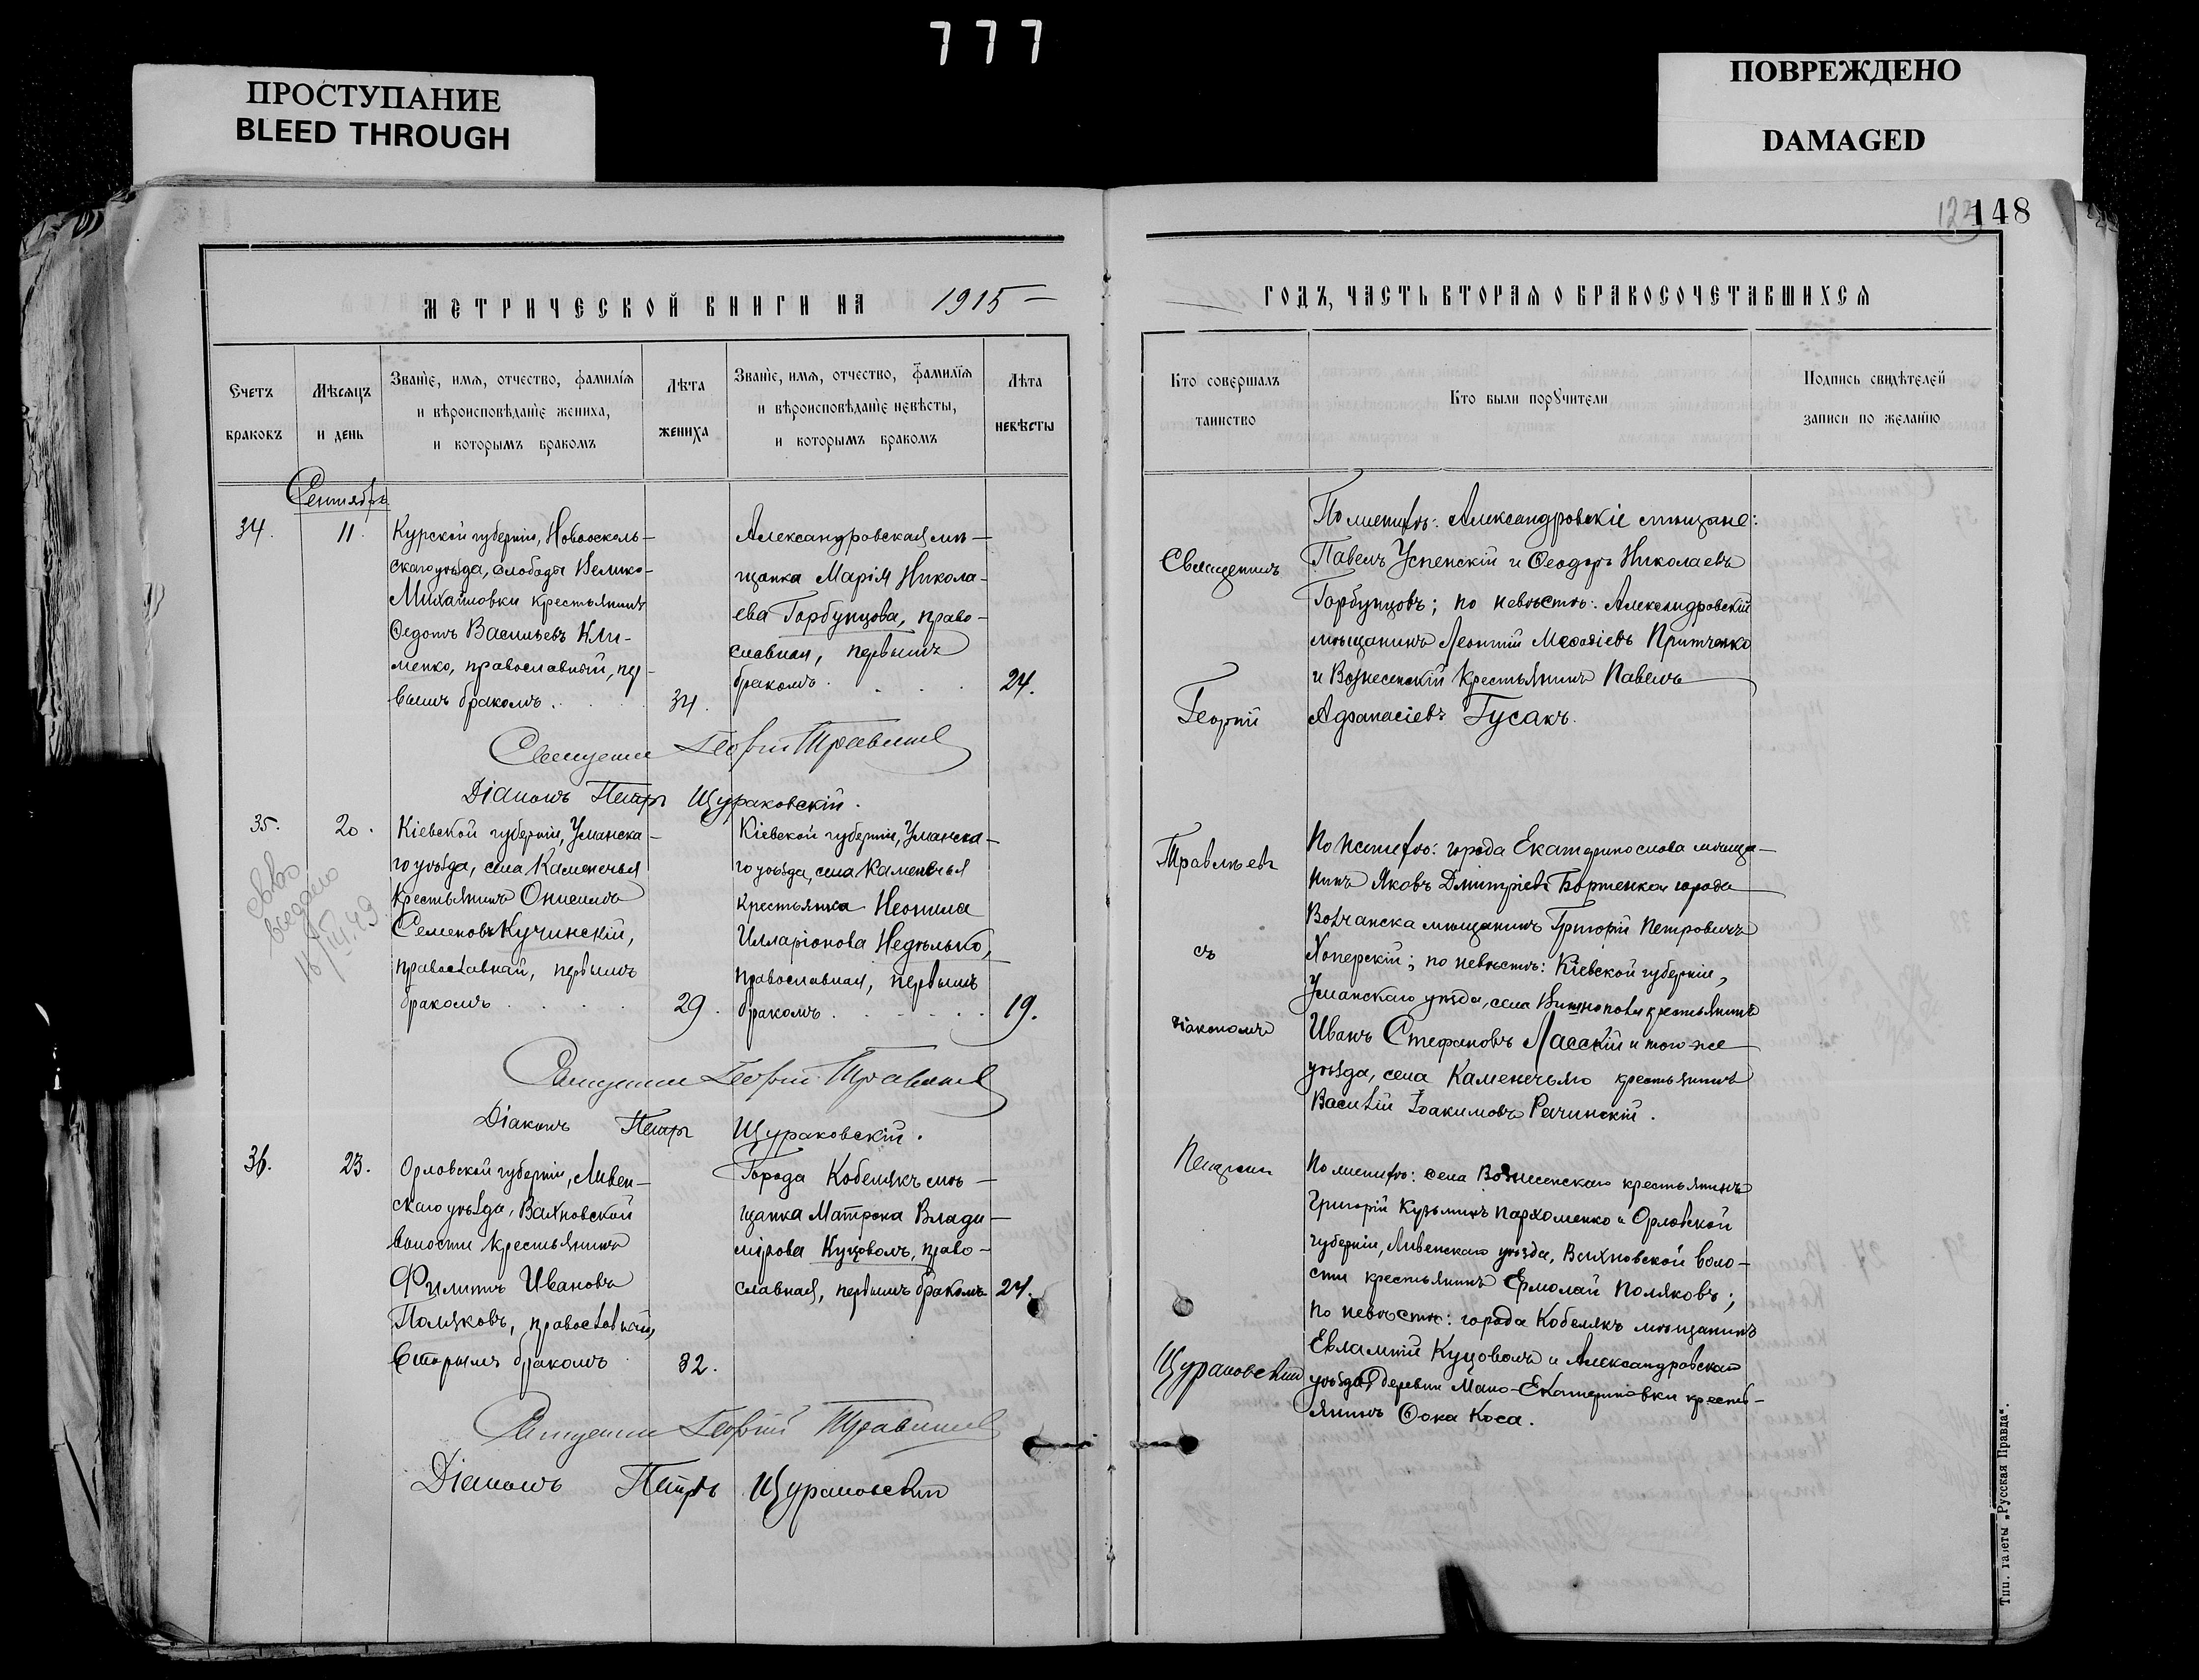 777
ПРОСТУПАНИЕ
BLEED THROUGH
ПОВРЕЖДЕНО
DAMAGED
148
МЕТРИЧЕСКОЙ КНИГИ НА 1915
Счетъ
браковъ
Мѣсяцъ
и день
Званіе, имя, отчество, фамилія
и вѣроисповѣданіе жениха,
и которымъ бракомъ
Лѣта
жениха
Званіе, имя, отчество, фамилія
и вѣроисповѣданіе невѣсты,
и которымъ бракомъ
Лѣта
невѣсты
Сентябрь
34.
11.
Курской губерніи, Новоосколь-
скаго уѣзда, слободы Велико-
Михайловки крестьянинъ
Ѳедотъ Васильевъ Кли-
менко, православный, пер-
вымъ бракомъ.
34.
Александровская мѣ-
щанка Марія Никола-
ева Горбунцова, право-
славная, первымъ
бракомъ.
24.
Священникъ Георгій Травлѣевъ
Діаконъ Петръ Щураковскій.
35.
20.
Кіевской губерніи, Уманска-
го уѣзда, села Каменечья
крестьянинъ Онисимъ
Семеновъ Кучинскій,
православный, первымъ
бракомъ
29.
Кіевской губерніи, Уманска-
го уѣзда, села Каменечья
крестьянка Неонила
Илларіонова Недѣлько,
православная, первымъ
бракомъ.
19.
Священникъ Георгій Травлѣевъ
Діаконъ Петръ Щураковскій.
36.
23.
Орловской губерніи, Ливен-
скаго уѣзда, Вахновской
волости крестьянинъ
Филиппъ Ивановъ
Поляковъ, православный,
вторымъ бракомъ
32.
Города Кобелякъ мѣ-
щанка Матрона Влади-
мірова Куцоволъ, право-
славная, первымъ бракомъ
24.
Священникъ Георгій Травлѣевъ
Діаконъ Петръ Щураковскій
ГОДЪ, ЧАСТЬ ВТОРАЯ О БРАКОСОЧЕТАВШИХСЯ
Кто совершалъ
таинство
Кто были поручители
Подпись свидѣтелей
записи по желанію
Священникъ
Георгій
Травлѣевъ
съ
діакономъ
Петромъ
Щураковскимъ
По жениху: Александровскіе мѣщане:
Павелъ Успенскій и Ѳеодоръ Николаевъ
Горбунцовъ; по невѣстѣ: Александровскій
мѣщанинъ Леонтій Меѳодіевъ Притченко
и Вознесенскій крестьянинъ Павелъ
Афанасіевъ Гусакъ.
По жениху: города Екатеринослава мѣща-
нинъ Яковъ Дмитріевъ Бортенко и города
Волчанска мѣщанинъ Григорій Петровичъ
Хоперскій; по невѣстѣ: Кіевской губерніи,
Уманскаго уѣзда, села крестьянинъ
Иванъ Стефановъ Ласскій и того-же
уѣзда, села Каменечьяго крестьянинъ
Василій Іоакимовъ Речинскій.
По жениху: села Вознесенскаго крестьянинъ
Григорій Кузьминъ Пархоменко и Орловской
губерніи, Ливенскаго уѣзда, Вахновской воло-
сти крестьянинъ Ермолай Поляковъ;
по невѣстѣ: города Кобелякъ мѣщанинъ
Евлампій Куцоволъ и Александровскаго
уѣзда, деревни Мало-Екатериновки кресть-
янинъ Ѳока Коса.
Тип. газеты „Русская Правда“.